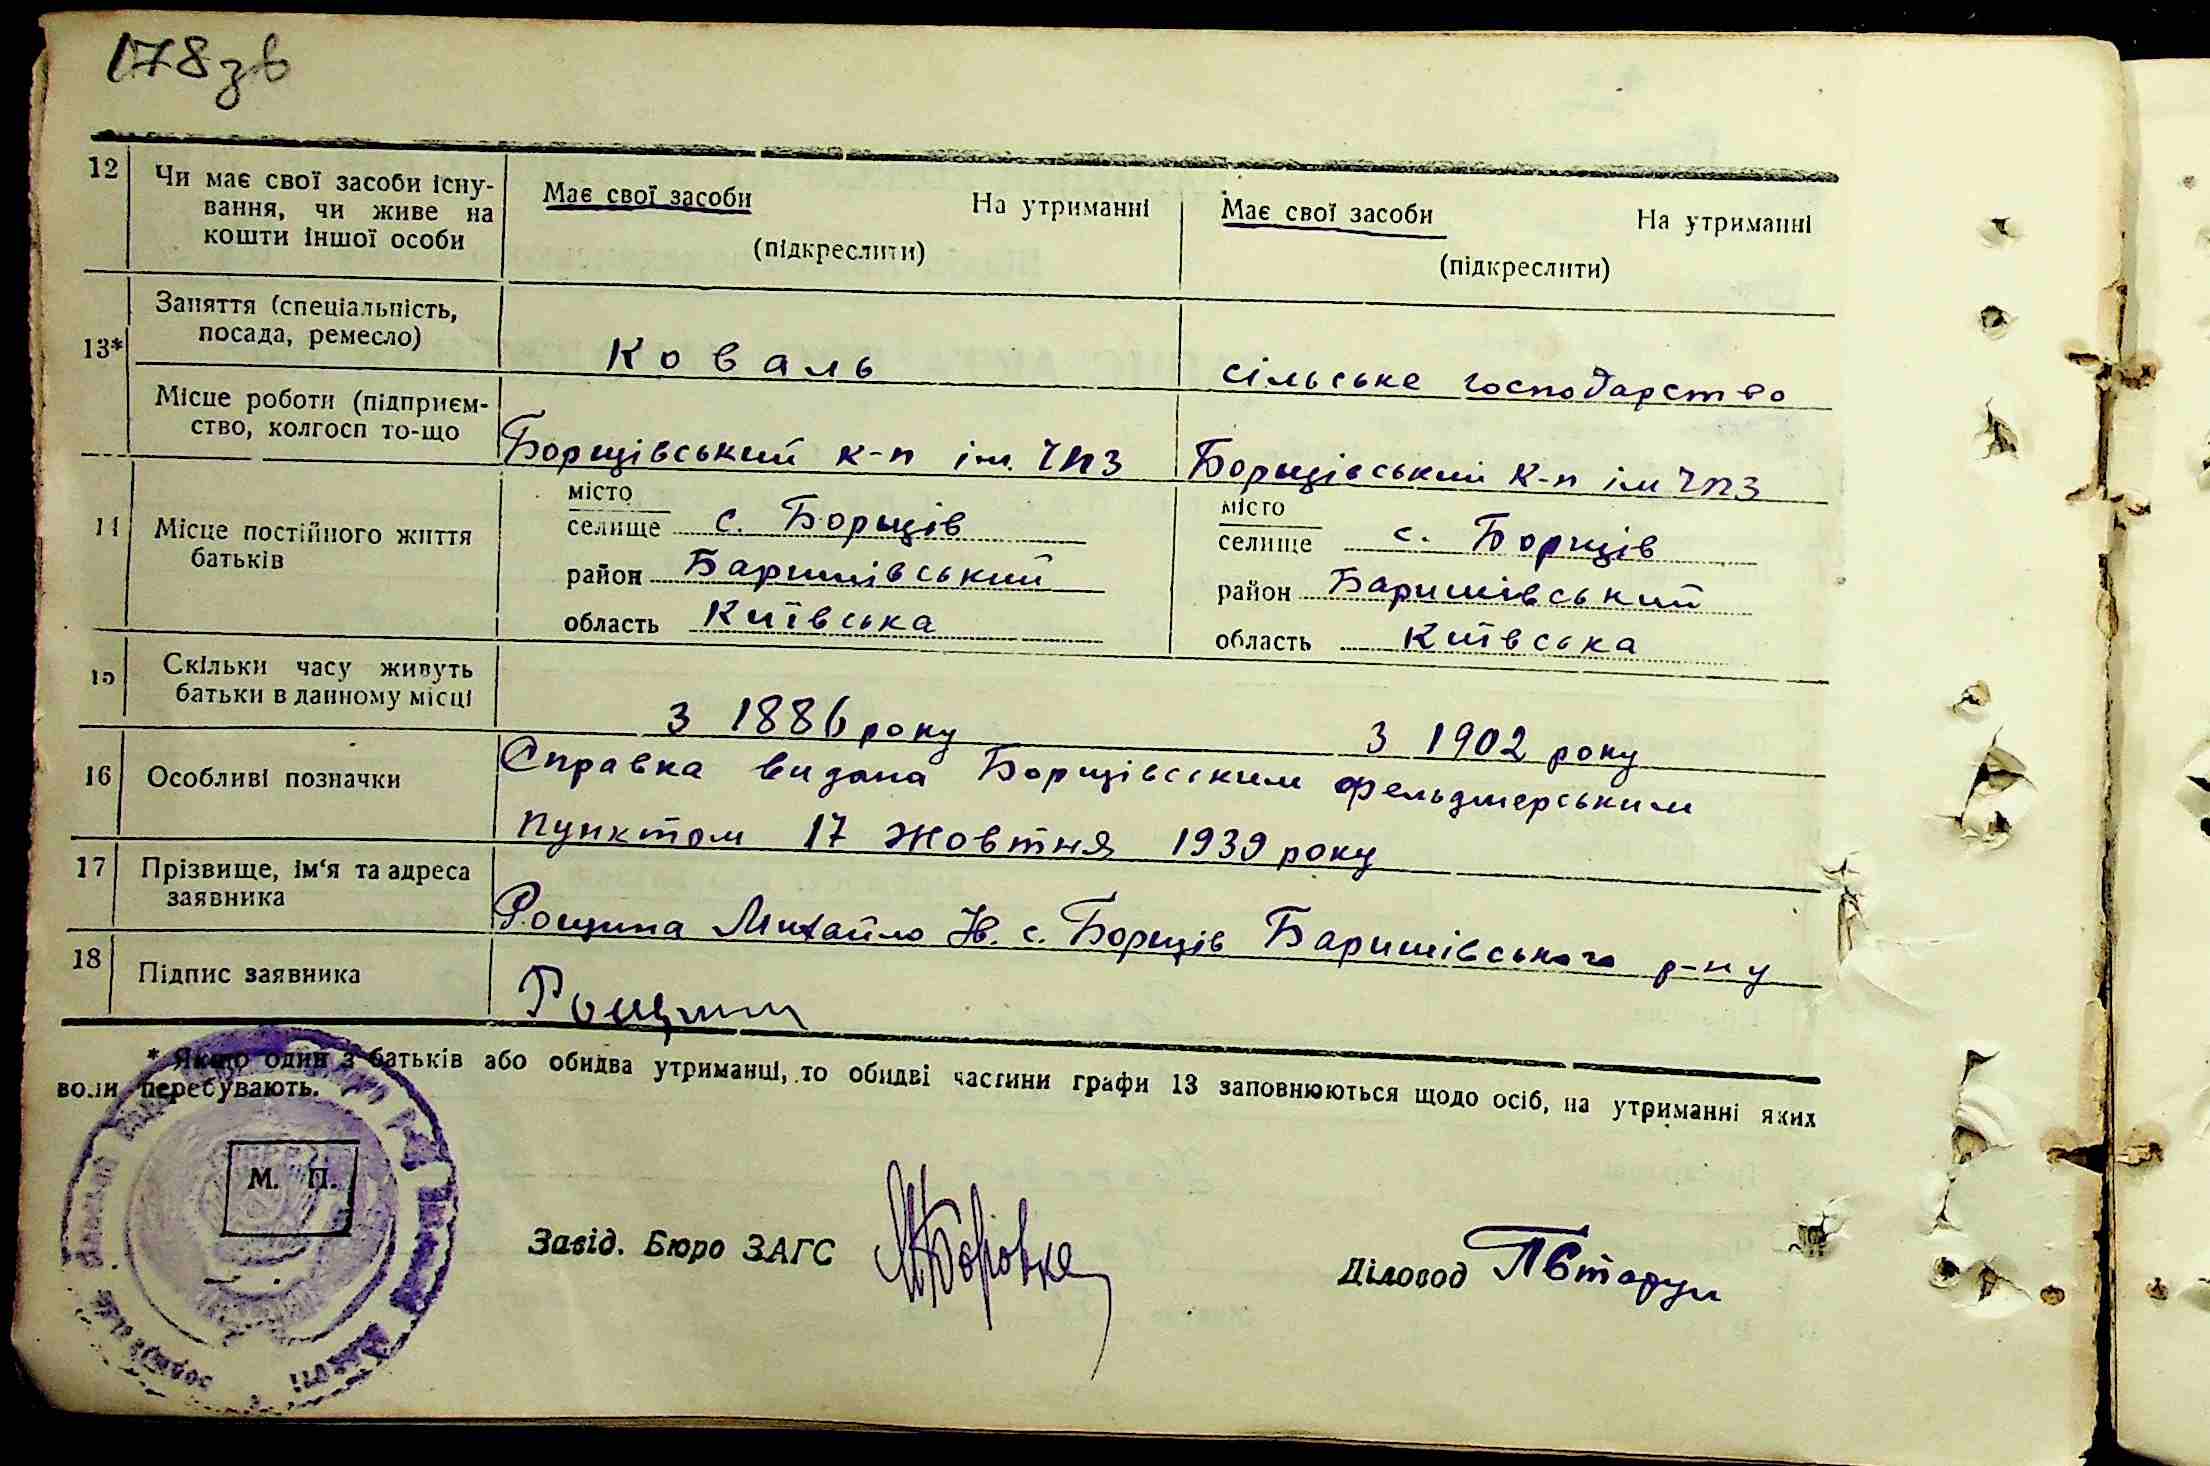 178 зв
12 Чи має свої засоби існу-
вання, чи живе на
кошти іншої особи
Має свої засоби На утриманні
(підкреслити)
Має свої засоби На утриманні
(підкреслити)
13* Заняття (спеціальність,
посада, ремесло)
Коваль
сільське господарство
Місце роботи (підприєм-
ство, колгосп то-що
Борщівський к-п ім. ЧПЗ
Борщівський к-п ім ЧПЗ
14 Місце постійного життя
батьків
місто
селище с. Борщів
район Баришівський
область Київська
місто
селище с. Борщів
район Баришівський
область Київська
15 Скільки часу живуть
батьки в данному місці
З 1886 року
З 1902 року
16 Особливі позначки
Справка видана Борщівським фельдшерським
пунктом 17 жовтня 1939 року
17 Прізвище, ім'я та адреса
заявника
Рощина Михайло Ів. с. Борщів Баришівського р-ну
18 Підпис заявника
Рощин
* Якщо один з батьків або обидва утриманці, то обидві частини графи 13 заповнюються щодо осіб, на утриманні яких
вони перебувають.
М. П.
Завід. Бюро ЗАГС
Діловод